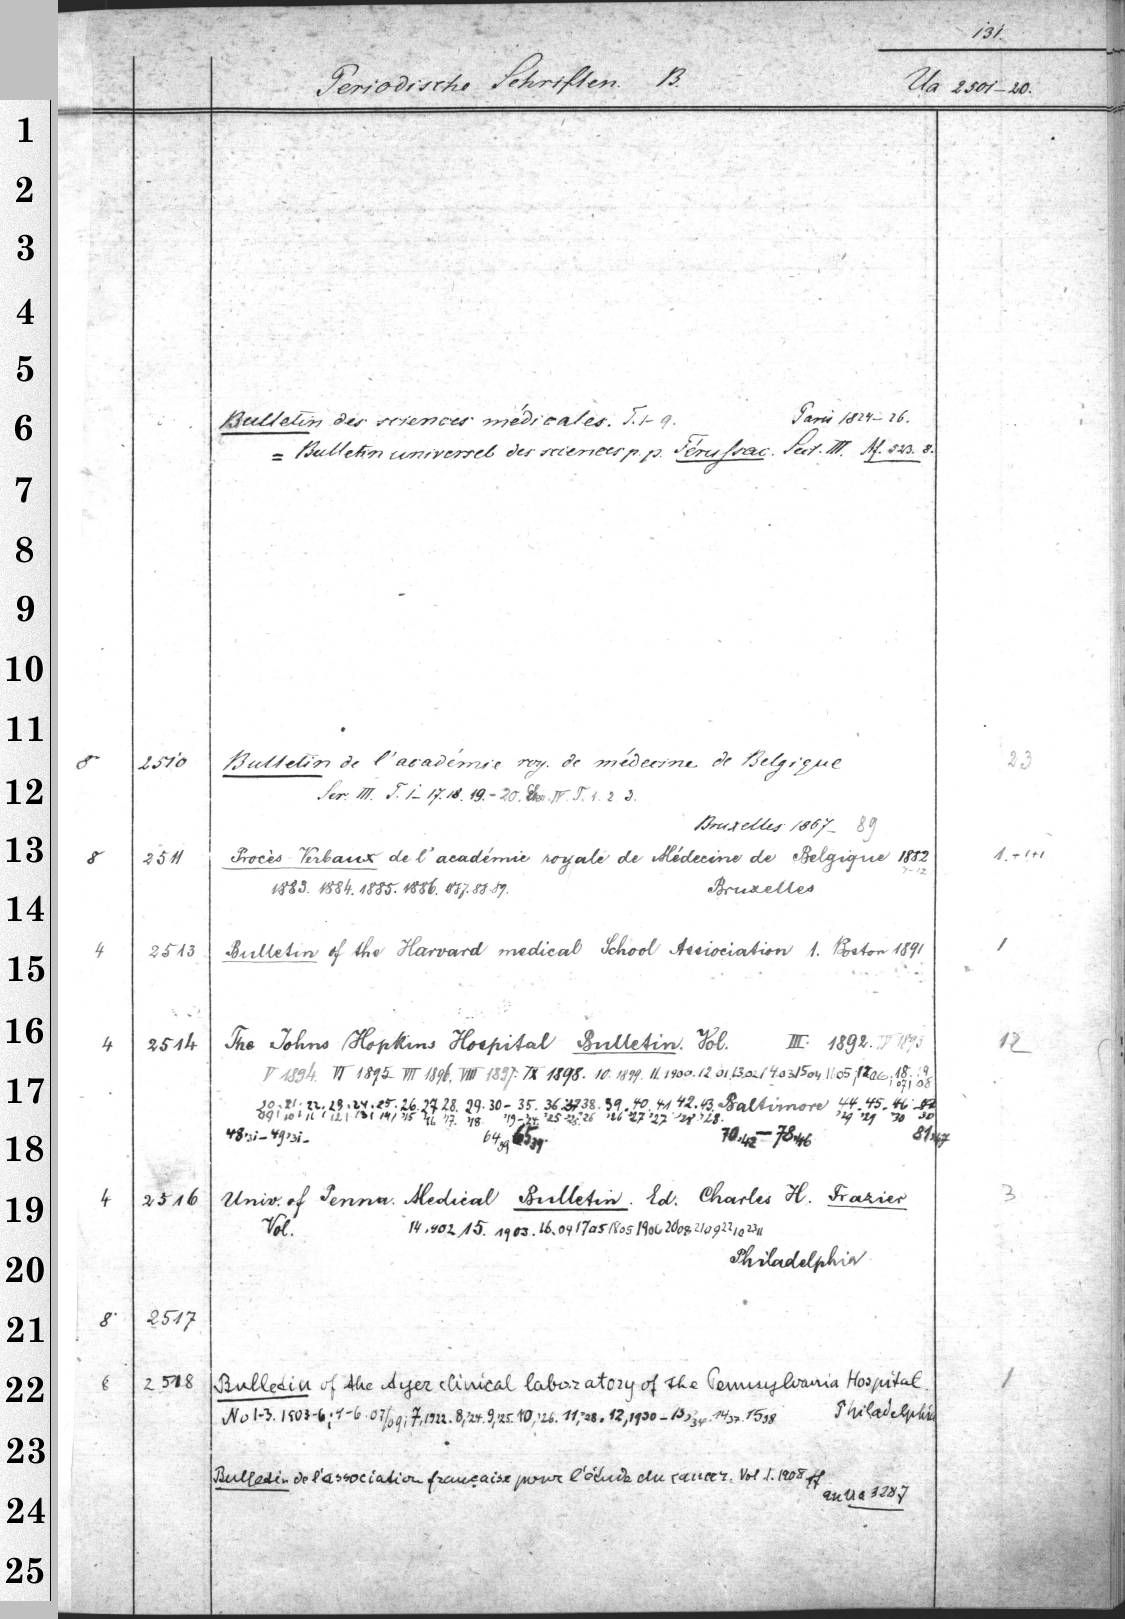 131.
Periodische Schriften. B. Ua 2501-20.
1
2
3
4
5
6 Bulletin des sciences médicales. T. 1-9. Paris 1824-26.
= Bulletin universel des sciences p. p. Férussac. Sect. III. Af. 523. 8.
7
8
9
10
11
8 2510 Bulletin de l'académie roy. de médecine de Belgique 23
12 Ser. III. T. 1-17. 18. 19.-20. IV. T. 1. 2 3.
Bruxelles 1867- 89
13 8 2511 Procès-Verbaux de l'académie royale de Médecine de Belgique 1882 1.+1+1
1883. 1884. 1885. 1886. 887. 88. 89. Bruxelles
14
4 2513 Bulletin of the Harvard medical School Assiociation 1. Boston 1891 1
15
16 4 2514 The Johns Hopkins Hospital Bulletin. Vol. III. 1892. IV 1893 12
V 1894. VI 1895 VII 1896. VIII 1897. IX 1898. 10. 1899. 11. 1900. 12 01. 13.02. 14.03. 15 04
17 22. 23. 24. 25. 26. 27 28. 29. 30- 35. 36. 37 38. 39. 40. 41 42. 43. Baltimore 44. 45. 46
18 48.'31-49'31- 64 39 65 39 70.42-78.46 81.47
4 2516 Univ. of Penna. Medical Bulletin. Ed. Charles H. Frazier 3
19 Vol. 14.902 15. 1903. 16.04 17 05 18 05 19 06 20 08 21 09 22 10 23 11
Philadelphia
20
8 2517
21
22 2518 Bulletin of the Ayer clinical laboratory of the Pennsylvania Hospital. 1
No 1-3. 1903-6; 4-6. 07/09; 7, 1922. 8,'24. 9,'25. 10,'26. 11,'28. 12, 1930-13, 34. 14 37. 15 38 Philadelphia
23
Bulletin de l'association française pour l'étude du cancer. Vol 1. 1908 ff
an Ua 3287
24
25